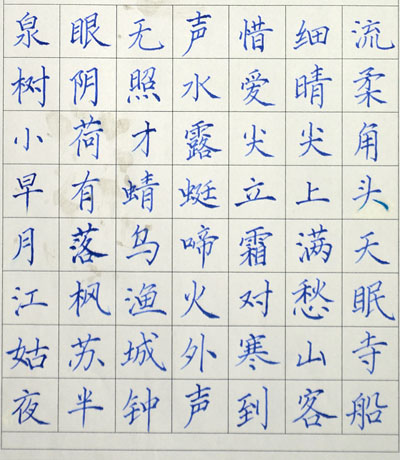 泉眼无声惜细流
树阴照水爱晴柔
小荷才露尖尖角
早有蜻蜓立上头
月落乌啼霜满天
江枫渔火对愁眠
姑苏城外寒山寺
夜半钟声到客船